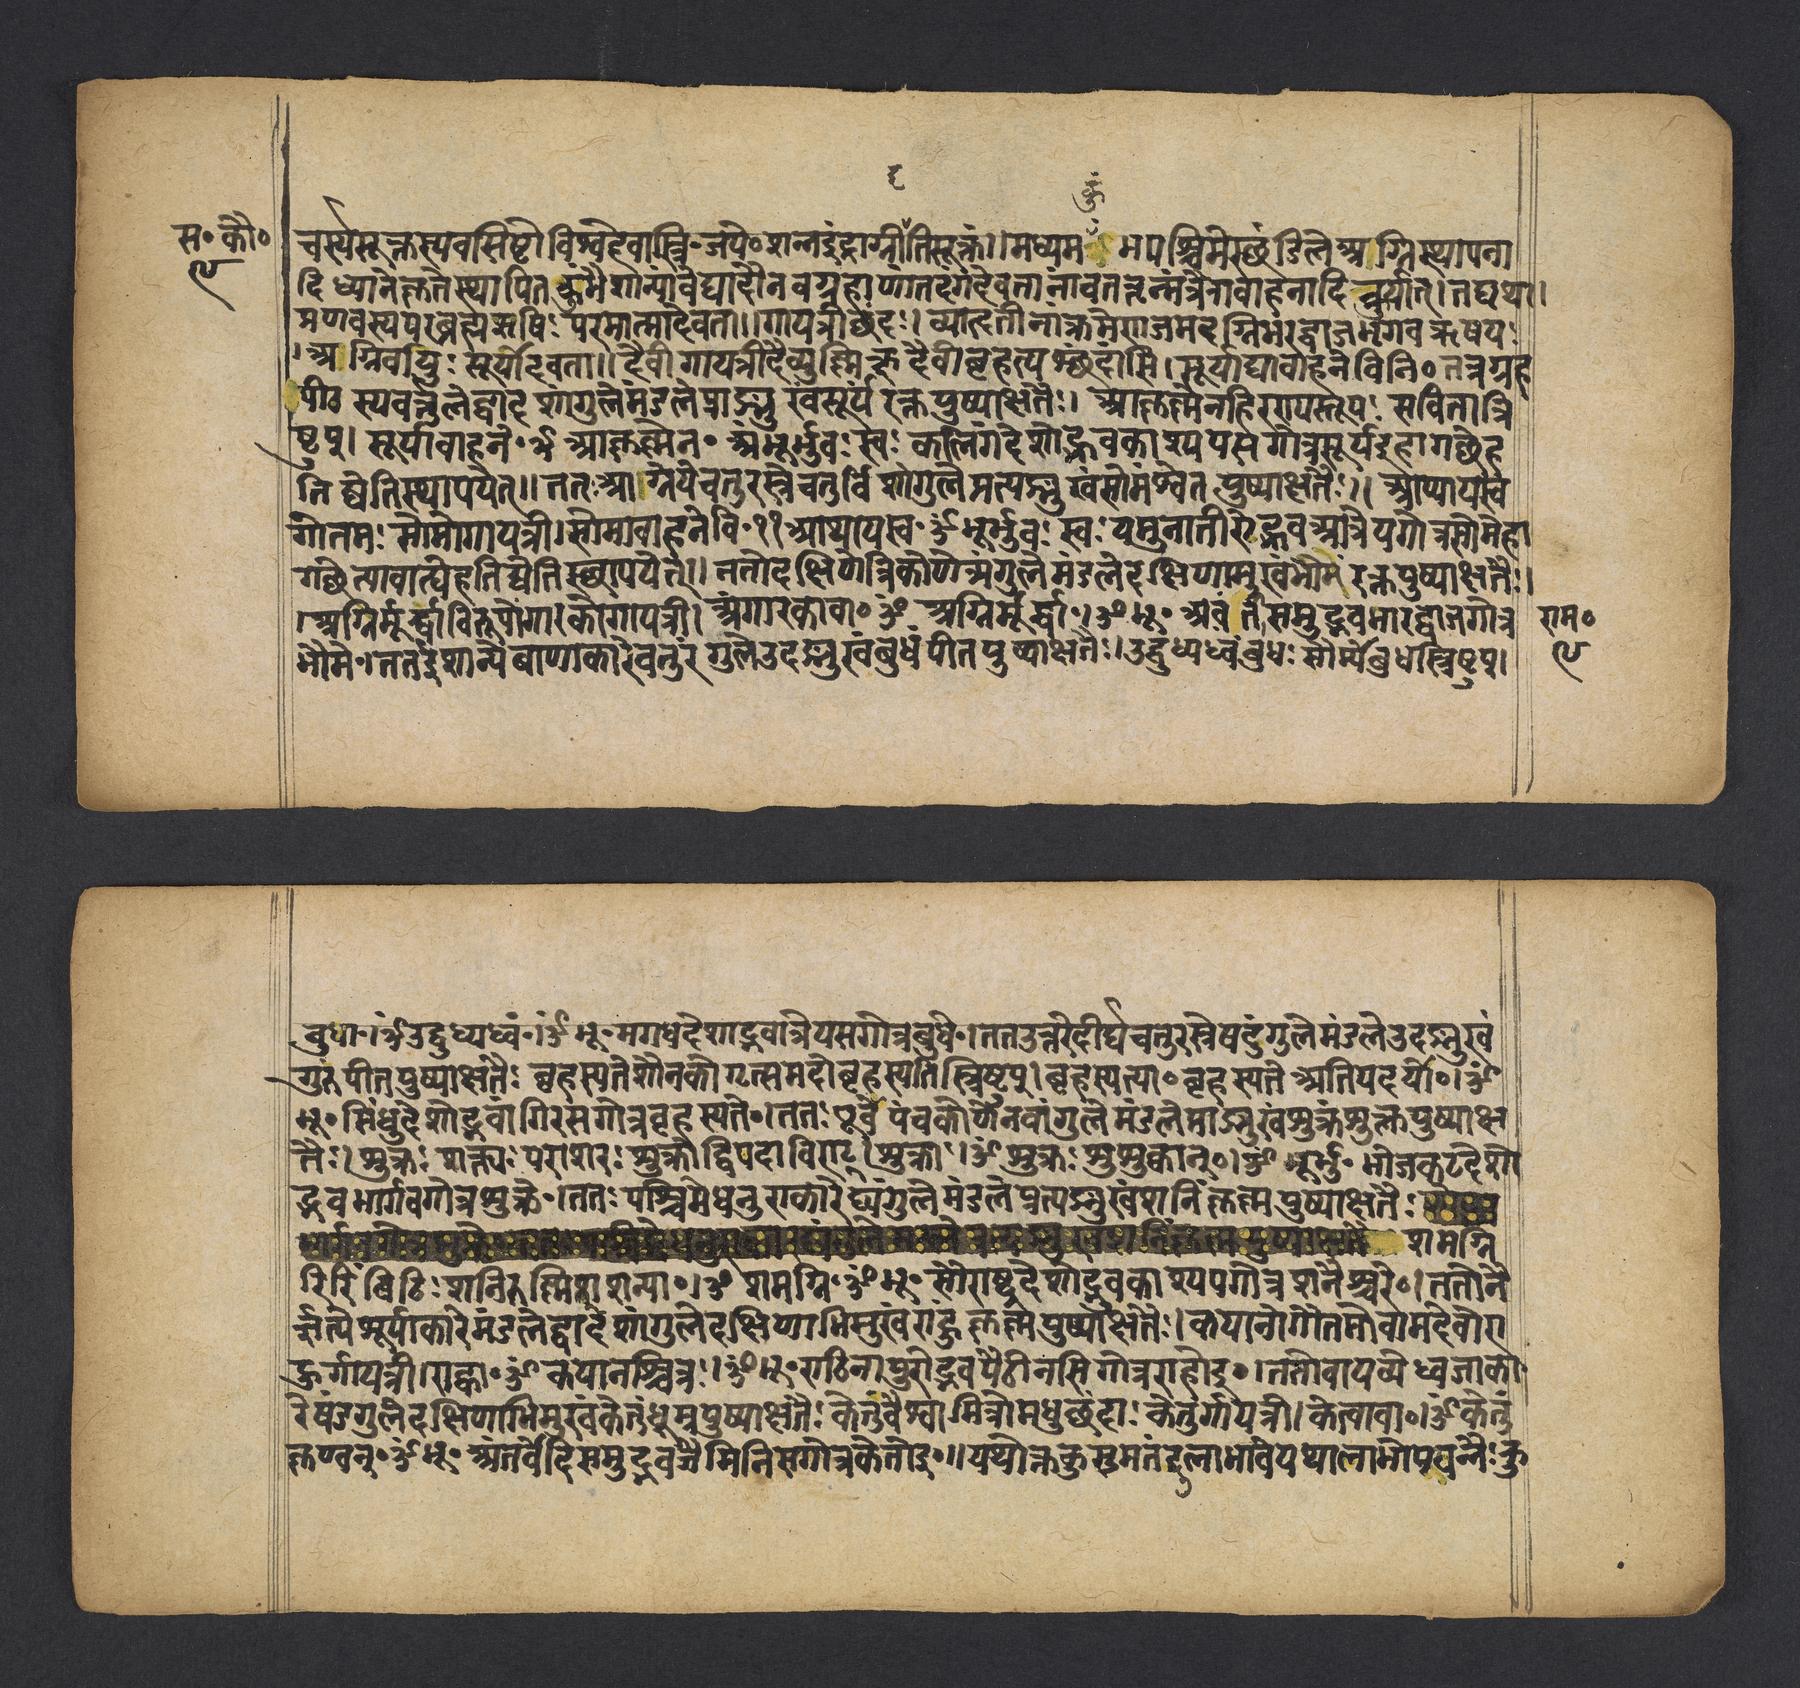 स॰ कौ॰
९
चर्स्यसूक्तस्यवसिष्टोविश्वेदेवास्त्रि॰जपे॰शन्नइंद्राग्नीतिसूक्तं।।मध्यम मपश्चिमेस्थंडिलेअग्निस्थापना
दिध्यानेकृतेस्थापित ऐशान्यांवेद्यादौनवग्रहाणांतदंगदेवतानांचतत्तन्मंत्रैरावाहनादिकुर्यात्।तद्यथा।
प्रणवस्यपरब्रह्मऋषिः परमात्मादेवता।।गायत्रीछंदः। व्याहृतीनांक्रमेणजमदग्निभरद्वाजभृगवऋषयः
।अग्निर्वायुः सूर्योदेवता।। दैवीगायत्रीदैव्युष्णिक् दैवीबृहत्यश्छंदांसि।सूर्याद्यावाहनेविनि॰तत्रग्रह
पीठ स्यवर्त्तुलेद्वादशांगुलेमंडलेप्राङ्मुखंसूर्यं रक्तपुष्पाक्षतैः। आकृष्णेनहिरण्यस्तूपः सवितात्रि
ष्टुप्। सूर्यावाहने॰ॐ आकृष्णेन॰ ॐभूर्भुवः स्वः कलिंगदेशोद्भवकाश्यपसगोत्रसूर्यइहागछेह
तिष्ठेतिस्थापयेत्।।ततःआग्नेयेचतुरस्रेचतुर्विंशांगुलेप्रत्यङ्मुखंसोमंश्वेतपुष्पाक्षतैः।। आप्यायस्व
गौतमः सोमोगायत्री।सोमावाहनेवि॰११आप्यायस्व॰ॐभूर्भुवः स्वः यमुनातीरोद्भवआत्रेयगोत्रसोमेहा
गछेत्यावाह्येहतिष्ठेतिस्थापयेत्।। ततोदक्षिणेत्रिकोणेत्र्यंगुलेमंडलेदक्षिणामुखंभौमं रक्तपुष्पाक्षतैः।
।अग्निर्मूर्द्धाविरूपोंगारकोगायत्री। अंगारकावा॰ॐ अग्निर्मूर्द्धा॰।ॐभू॰ अवंतीसमुद्भवभारद्वाजगोत्र
राम॰
९
भौमे॰।ततईशान्येबाणाकारेचतुरंगुलेउदङ्मुखंबुधंपीतपुष्पाक्षतैः।उद्बुध्यध्वंबुधः सौम्योबुधस्त्रिष्टुप्।
बुधा॰।ॐउद्बुध्यध्वं॰।ॐभू॰मगधदेशोद्भवात्रेयसगोत्रबुधे॰।ततउत्तरेदीर्घचतुरस्रेषडंगुलेमंडलेउदङ्मुखं
गुरुंपीतपुष्पाक्षतैः बृहस्पतेशौनकोगृत्समदोबृहस्पतिस्त्रिष्टुप्।बृहस्पत्या॰बृहस्पते अतियदर्यो॰।ॐ
भू॰सिंधुदेशोद्भवांगिरसगोत्रबृहस्पते॰।ततः पूर्वे पंचकोणेनवांगुलेमंडलेप्राङ्मुखंशुक्रंशुक्लपुष्पाक्ष
तैः।शुक्रः शाक्त्यः पराशरः शुक्रोद्विपदाविराट्।शुक्रा॰।ॐशुक्रः शुशुक्वान्॰।ॐ भूर्भु॰ भोजकटदेशो
द्भवभार्गवगोत्रशुक्रे॰।ततः पश्चिमेधनुराकारेद्व्यंगुलेमंडलेप्रत्यङ्मुखंशनिंकृष्णपुष्पाक्षतैः
शमग्नि
रिरिंबिठिः शनिरुष्णिक्शन्या॰।ॐ शमग्नि॰ॐभू॰ सौराष्ट्रदेशोद्भवकाश्यपगोत्रशनैश्चरे॰।ततोनै
र्ऋत्ये शूर्पाकारेमंडलेद्वादशांगुलेदक्षिणाभिमुखंराहुंकृष्णपुष्पाक्षतैः।कयानोगौतमोवामदेवोरा
हुर्गायत्री।राह्वा॰ॐ कयानश्चित्र॰।ॐभू॰राठिनापुरोद्भवपैठीनसिगोत्रराहोइ॰।ततोवायव्येध्वजाका
रेषडंगुलेदक्षिणाभिमुखंकेतुंधूम्रपुष्पाक्षतैः केतुंवैश्वामित्रोमधुछंदाः केतुर्गायत्री।केत्वावा॰।ॐकेतुं
कृण्वन्॰ॐभू॰ अंतर्वेदिसमुद्भवजैमिनिसगोत्रकेतोइ॰।।यथोक्तकुसुमतंदुलाभावेयथालाभोपपन्नैः कु